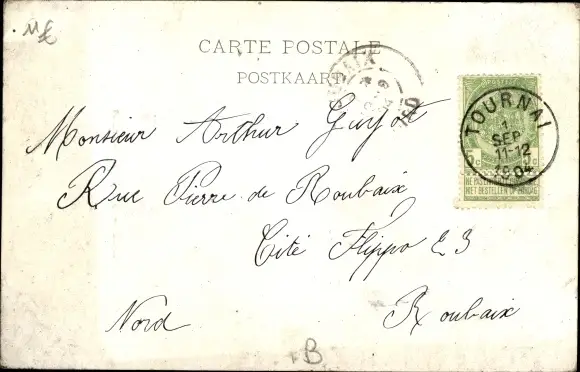 CARTE POSTALE
POSTKAART
TOURNAI
1
SEP
11-12
1904
NE PAS LIVRER LE DIMANCHE
NIET BESTELLEN OP ZONDAG
Monsieur Arthur Guyot
Rue Pierre de Roubaix
Cité Flippo 23
Nord
Roubaix
B